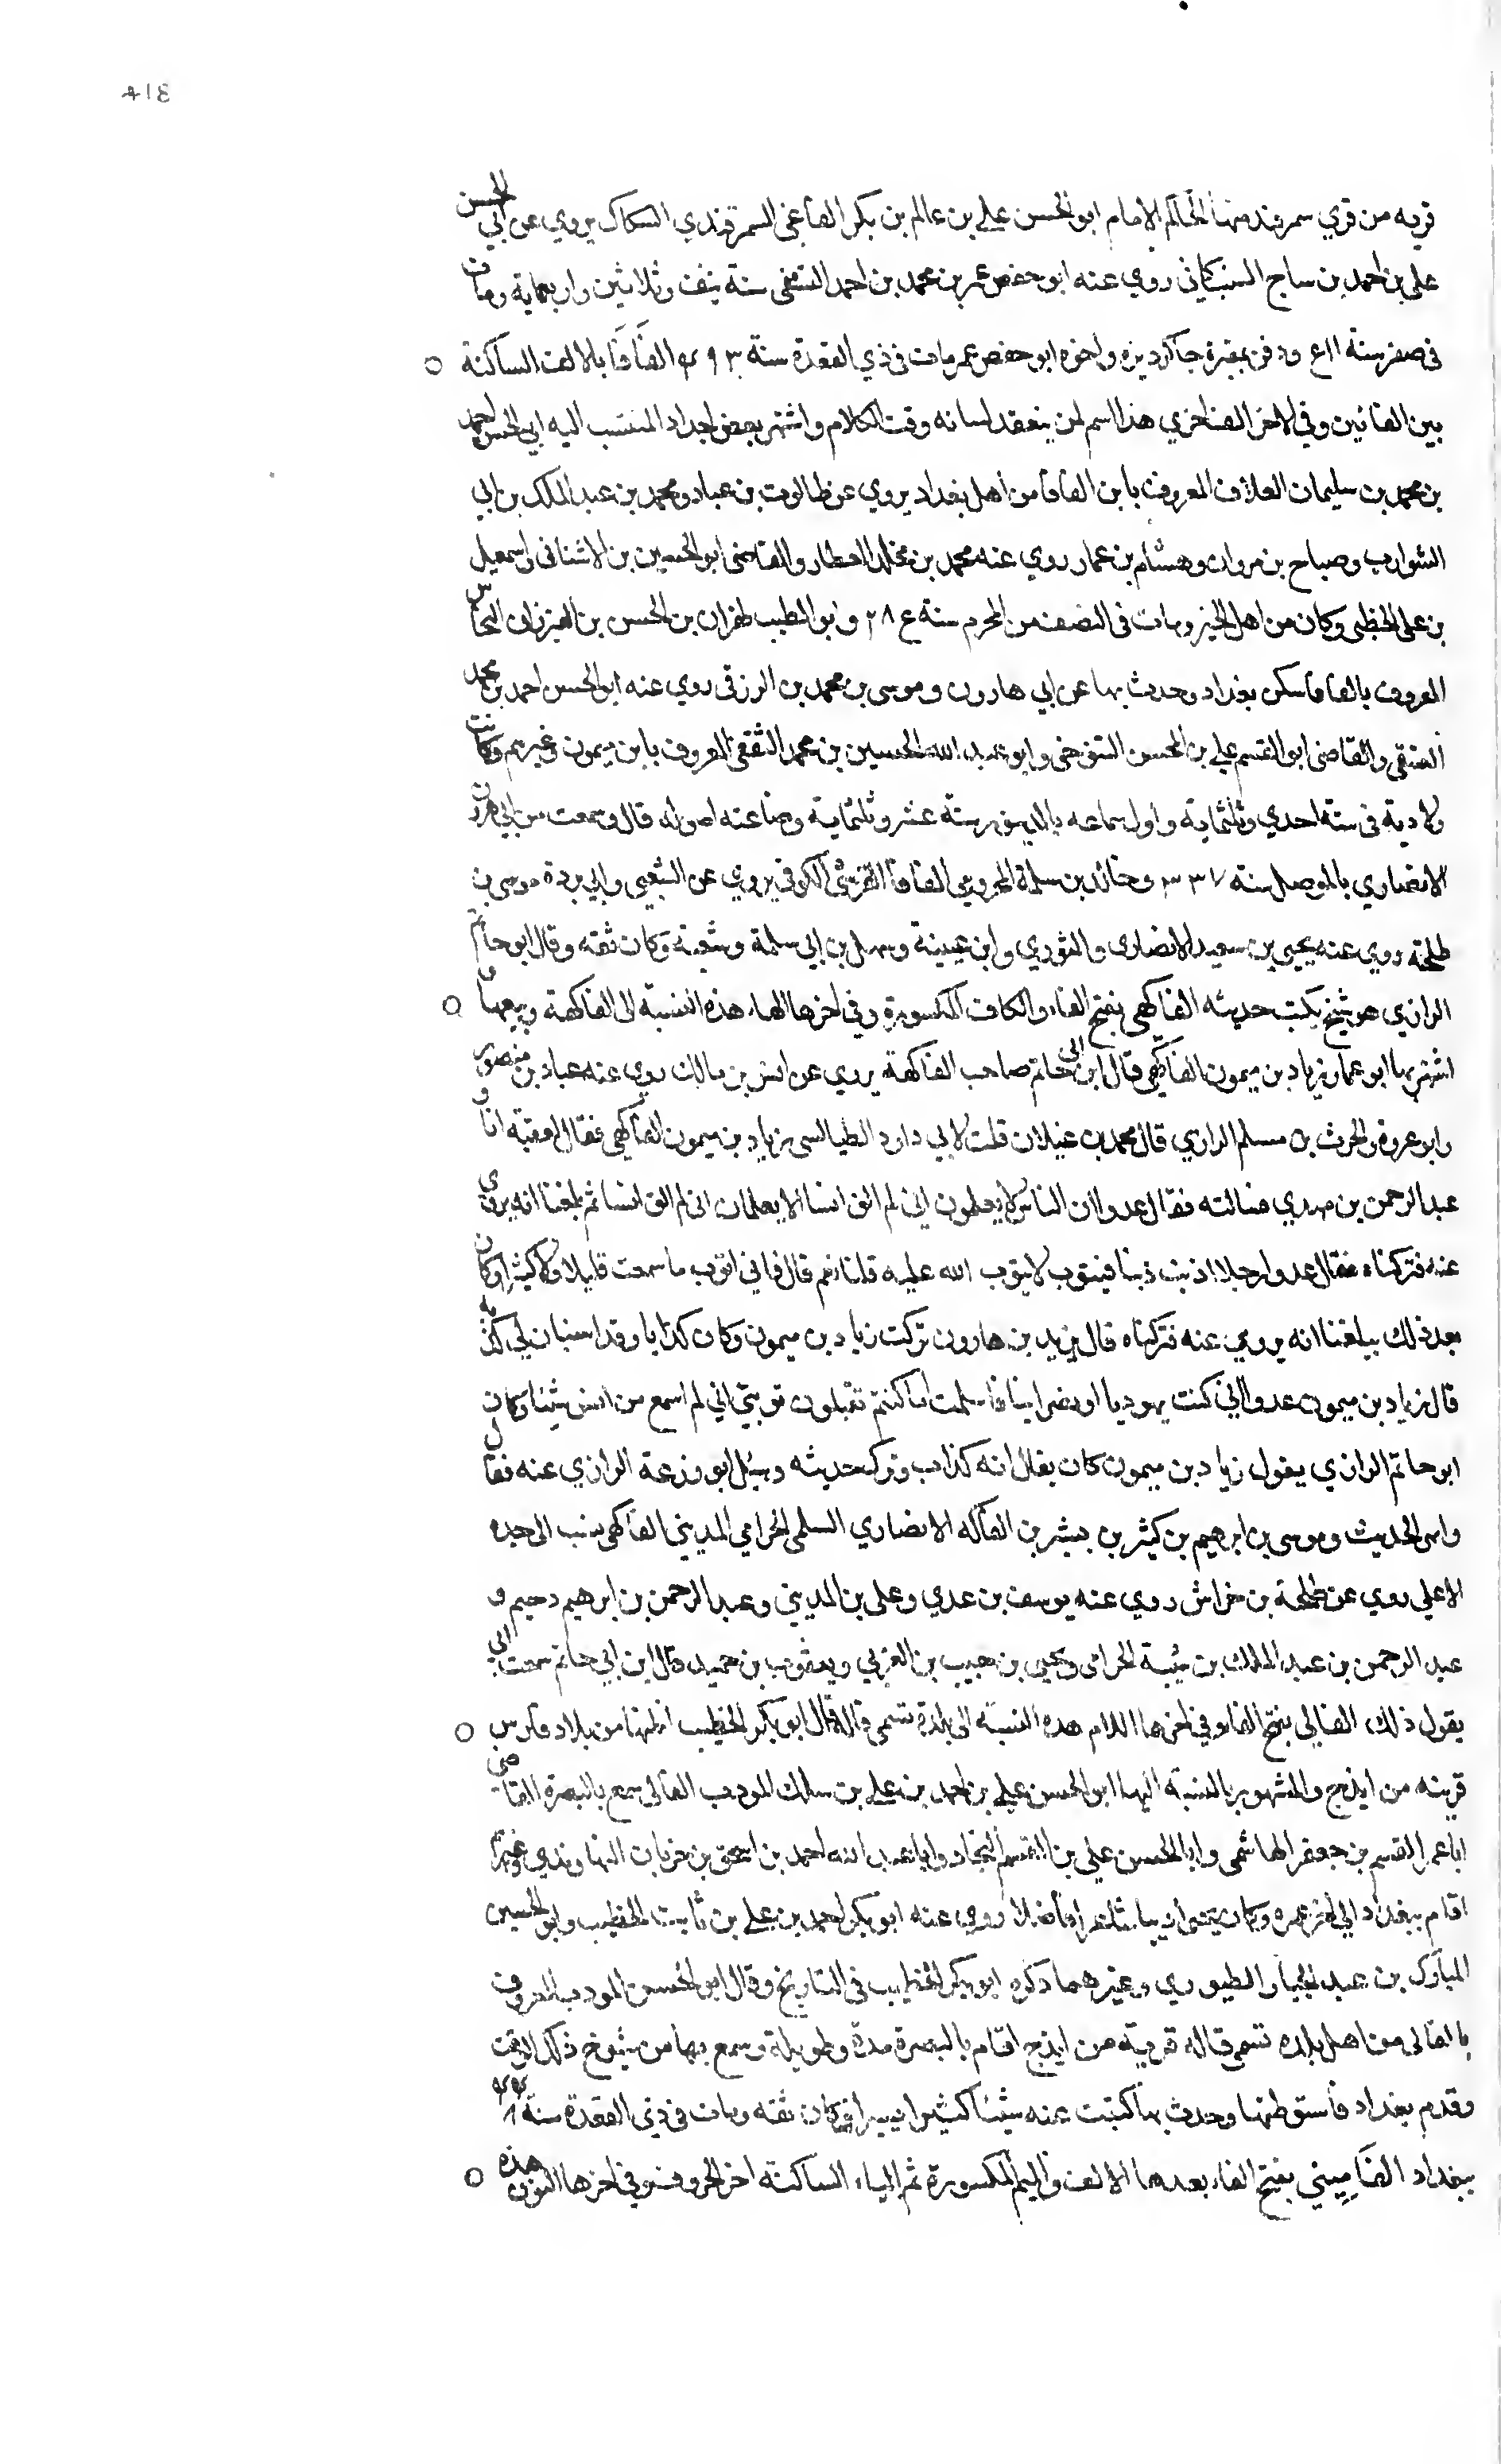 418
قريه من قري سمرقند منها الحاكم الامام ابو الحسن علي بن عالم بن بكر الفاغى السمرقندي السكاك يروي عن ابي الحسن
على بن احمد بن ساج السنكباثي روي عنه ابو حفص عمر بن محمد بن احمد النسفى سنة نيف وثلاثين واربعماية ومات
فى صفر سنة ودفن بمقبرة جاكرديزه واخوه ابو حفص عمر مات فى ذي القعدة سنة الفَافَا بالالف الساكنة ○
بين الفائين وفي الاخر الف اخري هذا اسم لمن ينعقد لسانه وقت الكلام واشتهر بعض اجداد المنتسب اليه ابي الحسن احمد
بن محمد بن سليمان العلاف المعروف بابن الفافا من اهل بغداد يروي عن طالوت بن عباد ومحمد بن عبد الملك بن ابي
الشوارب وصباح بن مروان وهشام بن عمار روي عنه محمد بن مخلد العطار والقاضى ابو الحسين بن الاشنانى واسمعيل
بن على الخطبى وكان من اهل الخير ومات فى النصف من المحرم سنة ٢٨ع وابو الطيب طفران بن الحسن بن الفيرزان النخاس
المعروف بالفافا سكن بغداد وحدث بها عن ابي هارون وموسى بن محمد بن الرزقى روي عنه ابو الحسن احمد بن محمد
العتقى والقاضى ابو القسم علي بن المحسن التنوخى وابو عبد الله الحسين بن محمد الثقفى المعروف بابن ميمون وغيرهم وكانت
ولادته فى سنة احدي وثلثماية واول سماعه بالدينور سنة عشر وثلثماية وضاعنه اصوله قال وسمعت من ابي هرون
الانصاري بالموصل سنة ٣٣٧ وخالد بن سلمة المخزومي الفافا القرشي الكوفى يروي عن الشعبى وابي بردة موسى بن
طلحة روي عنه يحيى بن سعيد الانصارى والثوري وابن عيينة وسهل بن ابي سلمة وشعبة وكان ثقة وقال ابو حاتم
الرازي هو شيخ يكتب حديثه الفاكهي بفتح الفاء والكاف المكسورة وفى اخرها الهاء هذه النسبة الى الفاكهة وبيعها و ○
اشتهر بها ابو عمار زياد بن ميمون الفاكهي قال ابن ابي حاتم صاحب الفاكهة يروي عن انس بن مالك روي عنه عباد بن منصور
وابو عروة والحرث بن مسلم الرازي قال محمد بن غيلان قلت لابي داود الطيالسى زياد بن ميمون الفاكهي فقال لقيته انا و
عبد الرحمن بن مهدي فسالته فقال عدوا ان الناس لا يعلمون اني لم الق انسا الا يعلمان انى لم الق انسا ثم بلغنا انه يروي
عنه فتركناه فقال عدوا رجلا اذنب ذنبا فيتوب لا يتوب الله عليه قلنا نعم قال فاني اتوب ما سمعت قليلا ولا كثيرا وكان
بعد ذلك يبلغنا انه يروي عنه فتركناه قال يزيد بن هارون تركت زياد بن ميمون وكان كذابا وقد استبان لي كذبه
قال زياد بن ميمون عدوا اني كنت يهوديا او نصرانيا فاسلمت اما كنتم تقبلون توبتي اني لم اسمع من انس شيئا وكان
ابو حاتم الرازي يقول زياد بن ميمون كان يقال انه كذاب وترك حديثه وسئل ابو زرعة الرازي عنه فقال
واهى الحديث وموسى بن ابرهيم بن كثير بن بشير بن الفاكه الانصاري السلمى الحرامي المديني الفاكهي ينسب الى جده
الاعلى روي عن طلحة بن خراش روي عنه يوسف بن عدي وعلى بن المديني وعبد الرحمن بن ابرهيم دحيم و
عبد الرحمن بن عبد الملك بن شيبة الحرامى ويحيى بن حبيب بن العربي ويعقوب بن حميد قال ابن ابي حاتم سمعت ابي
يقول ذلك الفالي بفتح الفاء وفي اخرها اللام هذه النسبة الى بلدة تسمى فالة قال ابو بكر الخطيب اظنها من بلاد فارس ○
قرينه من ايذج والمشهور بالنسبة اليها ابو الحسن علي بن احمد بن علي بن سلك المودب الفالى سمع بالبصرة القاضى
ابا عمر القسم بن جعفر الهاشمى وابا الحسن علي بن القسم النجاد وابا عبد الله احمد بن اسحق بن خربان النهاوندي وغيرهم
اقام ببغداد الي اخر عمره وكان فاضلا روي عنه ابو بكر احمد بن علي بن ثابت الخطيب وابو الحسين
المبارك بن عبد الجبار الطيوري وغيرهما ذكره ابو بكر الخطيب فى التاريخ وقال ابو الحسن المودب المعروف
بالفالى من اهل بلده تسمى فاله قريبة من ايذج اقام بالبصرة مدة طويلة وسمع بها من شيوخ ذلك الوقت
وقدم بغداد فاستوطنها وحدث بها كتبت عنه شيئا كثيرا وكان ثقه ومات فى ذى القعدة سنة
ببغداد الفَامِيني بفتح الفاء بعدها الالف والميم المكسورة ثم الياء الساكنة اخر الحروف وفى اخرها النون هذه ○